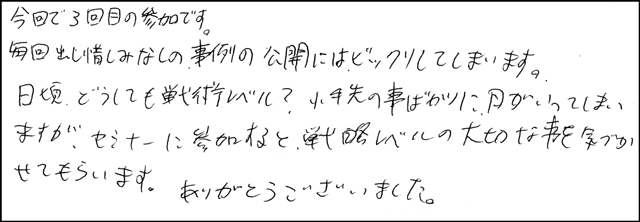 今回で3回目の参加です。
毎回出し惜しみなしの事例の公開にはビックリしてしまいます。
日頃どうしても戦術レベル？小手先の事ばかりに目がいってしまい
ますが、セミナーに参加すると、戦略レベルの大切な事を気づか
せてもらいます。ありがとうございました。